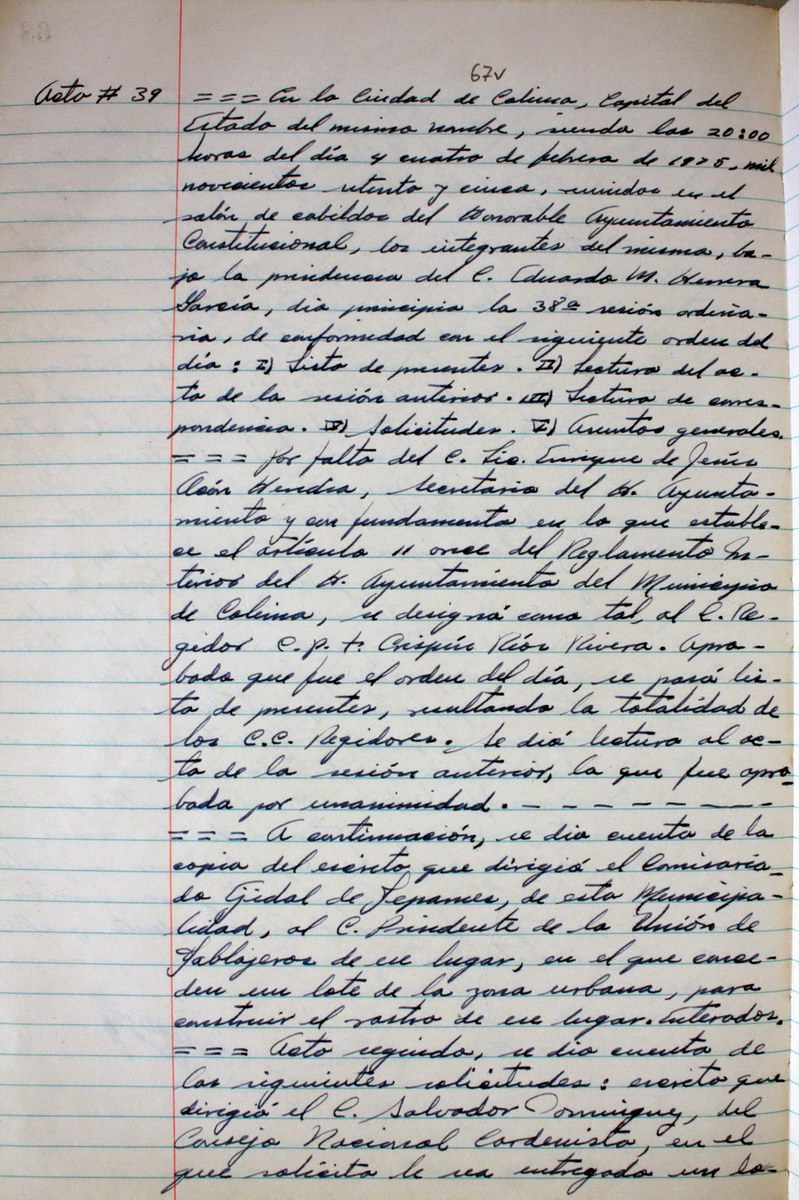 67v
Acta # 39 === En la Ciudad de Colima, Capital del
Estado del mismo nombre, siendo las 20:00
horas del día 4 cuatro de febrero de 1975, mil
novecientos setenta y cinco, reunidos en el
salón de cabildos del Honorable Ayuntamiento
Constitucional, los integrantes del mismo, ba-
jo la presidencia del C. Eduardo M. Herrera
García, dio principio la 38ª sesión ordina-
ria, de conformidad con el siguiente orden del
día: I) Lista de presentes. II) Lectura del ac-
ta de la sesión anterior. III) Lectura de corres-
pondencia. IV) Solicitudes. V) Asuntos generales.
=== Por falta del C. Lic. Enrique de Jesús
Ocón Heredia, Secretario del H. Ayunta-
miento y con fundamento en lo que estable-
ce el artículo 11 once del Reglamento In-
terior del H. Ayuntamiento del Municipio
de Colima, se designó como tal, al C. Re-
gidor C.P.T. Crispín Ríos Rivera. Apro-
bada que fue el orden del día, se pasó lis-
ta de presentes, resultando la totalidad de
los C.C. Regidores. Se dió lectura al ac-
ta de la sesión anterior, la que fue apro-
bada por unanimidad. - - - - - - - -
=== A continuación, se dio cuenta de la
copia del escrito que dirigió el Comisaria-
do Ejidal de Tepames, de esta Municipa-
lidad, al C. Presidente de la Unión de
Tablajeros de ese lugar, en el que conce-
den un lote de la zona urbana, para
construir el rastro de ese lugar. Enterados.
=== Acto seguido, se dio cuenta de
las siguientes solicitudes: escrito que
dirigió el C. Salvador Domínguez, del
Consejo Nacional Cardenista, en el
que solicita le sea entregado un lo-